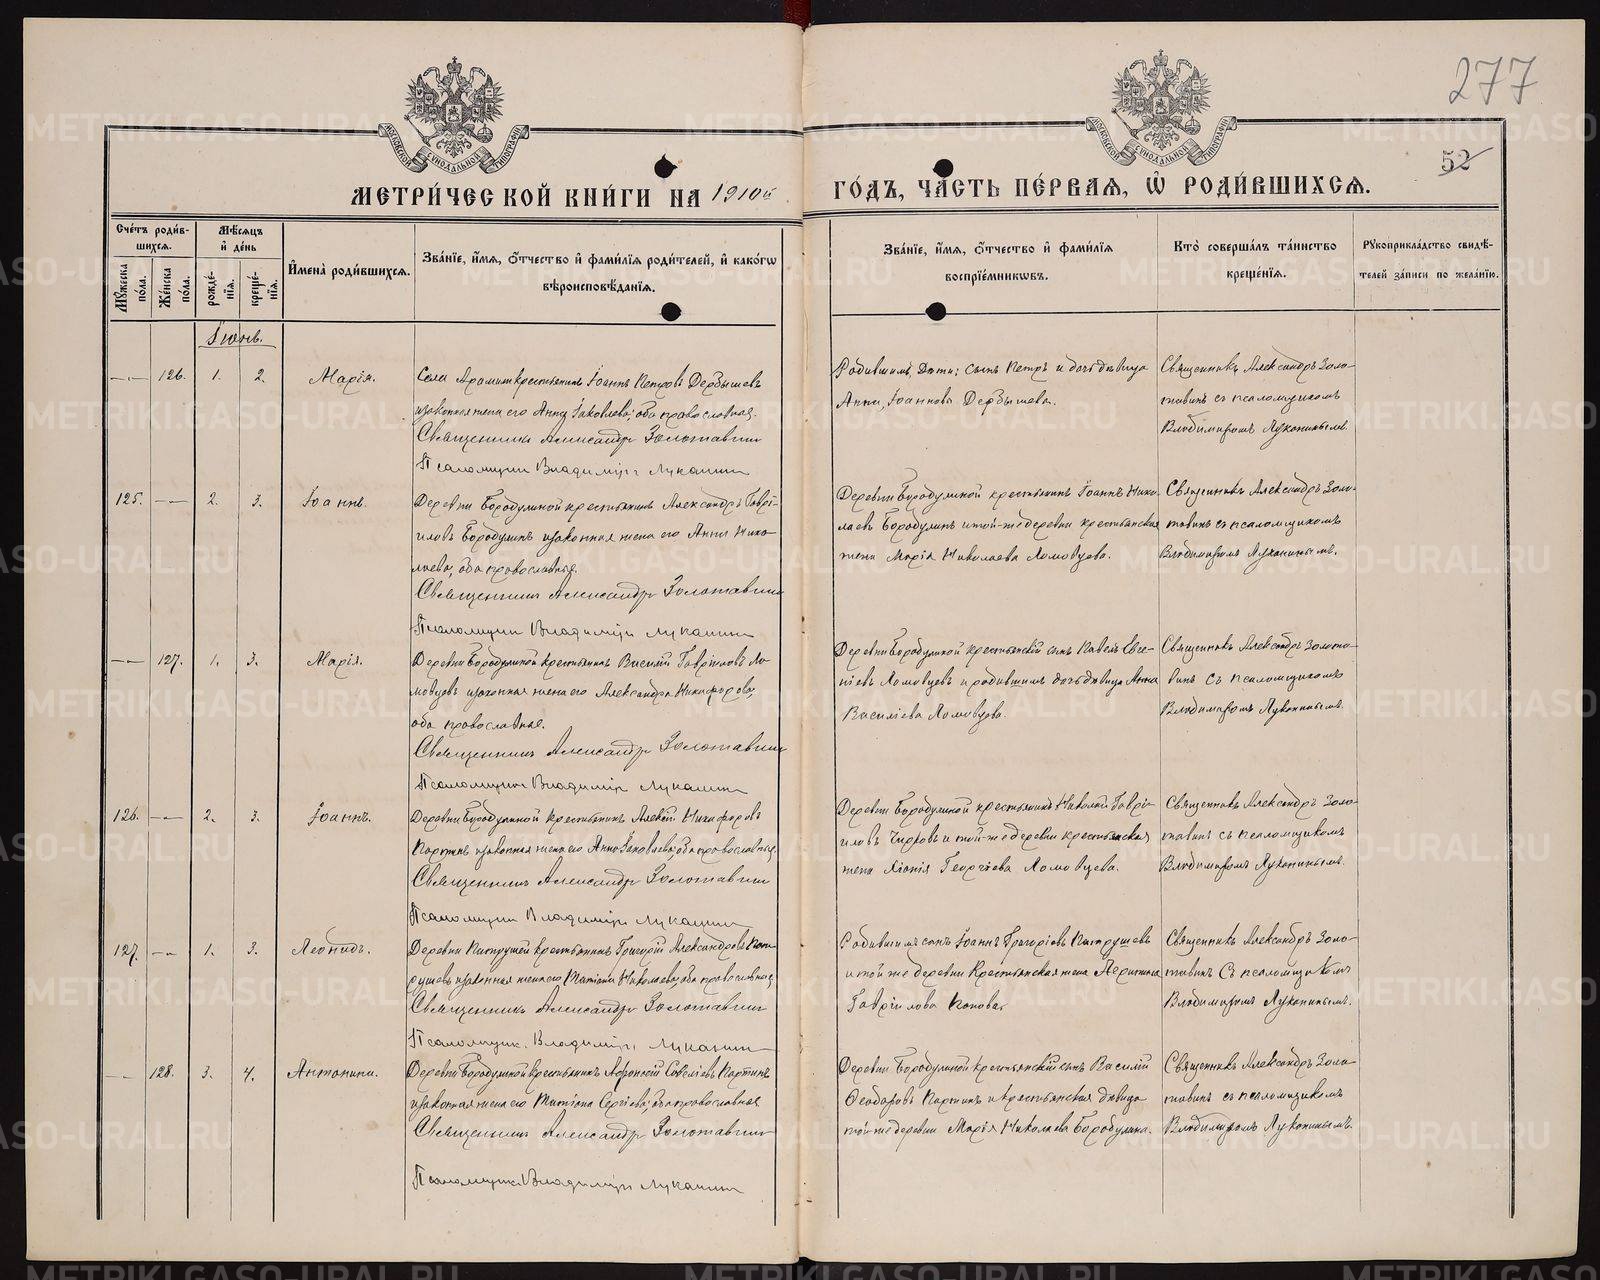 277
52
МОСКОВСКОЙ СѴНОДАЛЬНОЙ ТИПОГРАФІИ
МОСКОВСКОЙ СѴНОДАЛЬНОЙ ТИПОГРАФІИ
МЕТРИ́ЧЕСКОЙ КНИ́ГИ НА 1910й ГО́ДЪ, ЧА́СТЬ ПЕ́РВАЯ, Ѽ РОДИ́ВШИХСЯ.
Сче́тъ роди́вшихся.
Му́жеска по́ла.
Же́нска по́ла.
Мѣ́сяцъ и҆ де́нь
рожде́нїя.
креще́нїя.
И҆мена̀ роди́вшихся.
Зва́нїе, и҆́мя, ѻ҆́тчество и҆ фами́лїя роди́телей, и҆ како́гѡ
вѣроисповѣ́данїя.
Зва́нїе, и҆́мя, ѻ҆́тчество и҆ фами́лїя
воспрїе́мниковъ.
Кто̀ соверша́лъ та́инство
креще́нїя.
Рꙋкоприкла́дство свидѣ́телей за́писи по жела́нїю.
Іюнь.
126. 1. 2. Марія.
Села Арамили крестьянинъ Іоаннъ Петровъ Дербышевъ
и законная жена его Анна Іаковлева, оба православные.
Священникъ Александръ Золотавинъ
Псаломщикъ Владиміръ Луканинъ
Родившихъ дѣти: сынъ Петръ и дочь дѣвица
Анна Іоаннова Дербышева.
Священникъ Александръ Золо-
тавинъ съ псаломщикомъ
Владимиромъ Луканинымъ.
125. 2. 3. Іоаннъ.
Деревни Бородулиной крестьянинъ Александръ Гаврі-
иловъ Бородулинъ и законная жена его Анна Нико-
лаева, оба православные.
Священникъ Александръ Золотавинъ
Псаломщикъ Владиміръ Луканинъ
Деревни Бородулиной крестьянинъ Іоаннъ Нико-
лаевъ Бородулинъ и той-же деревни крестьянская
жена Марія Николаева Ломовцева.
Священникъ Александръ Золо-
тавинъ съ псаломщикомъ
Владимиромъ Луканинымъ.
127. 1. 3. Марія.
Деревни Бородулиной крестьянинъ Василій Гавріиловъ Ло-
мовцевъ и законная жена его Александра Никифорова,
оба православные.
Священникъ Александръ Золотавинъ
Псаломщикъ Владиміръ Луканинъ
Деревни Бородулиной крестьянскій сынъ Павелъ Евсе-
ніевъ Ломовцевъ и родившихъ дочь дѣвица Анна
Василіева Ломовцева.
Священникъ Александръ Золота-
винъ съ псаломщикомъ
Владимиромъ Луканинымъ.
126. 2. 3. Іоаннъ.
Деревни Бородулиной крестьянинъ Алексій Никифоровъ
Партинъ и законная жена его Анна Іаковлева, оба православные.
Священникъ Александръ Золотавинъ
Псаломщикъ Владиміръ Луканинъ
Деревни Бородулиной крестьянинъ Николай Гаврі-
иловъ Чирковъ и той-же деревни крестьянская
жена Хіонія Георгіева Ломовцева.
Священникъ Александръ Золо-
тавинъ съ псаломщикомъ
Владимиромъ Луканинымъ.
127. 1. 3. Леонидъ.
Деревни Патрушей крестьянинъ Григорій Александровъ Пат-
рушевъ и законная жена его Татіана Николаева, оба православные.
Священникъ Александръ Золотавинъ
Псаломщикъ Владиміръ Луканинъ
Родившихъ сынъ Іоаннъ Григоріевъ Патрушевъ
и той же деревни крестьянская жена
Гавріилова Попова.
Священникъ Александръ Золо-
тавинъ съ псаломщикомъ
Владимиромъ Луканинымъ.
128. 3. 4. Антонина.
Деревни Бородулиной крестьянинъ Савеліевъ Партинъ
и законная жена его Татіана Сергіева, оба православные
Священникъ Александръ Золотавинъ
Псаломщикъ Владиміръ Луканинъ
Деревни Бородулиной крестьянскій сынъ Василій
Ѳеодоровъ Партинъ и крестьянская дѣвица
той-же деревни Марія Николаева Бородулина.
Священникъ Александръ Золо-
тавинъ съ псаломщикомъ
Владимиромъ Луканинымъ.
METRIKI.GASO-URAL.RU